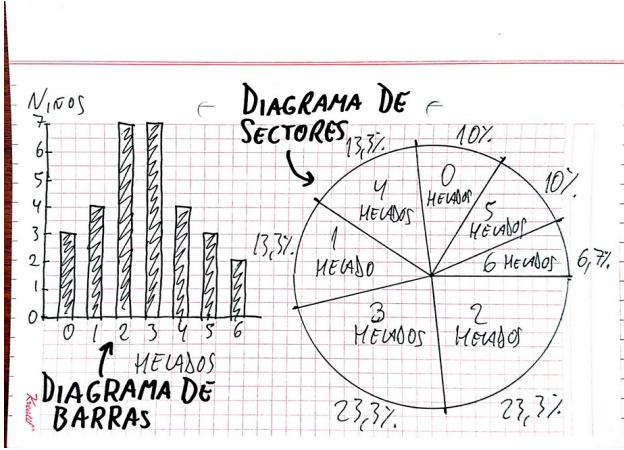 NIÑOS
7
6
5
4
3
2
1
0
0 1 2 3 4 5 6
HELADOS
DIAGRAMA DE
BARRAS
DIAGRAMA DE
SECTORES
13,3%
10%
10%
6,7%
23,3%
23,3%
13,3%
4
HELADOS
0
HELADOS
5
HELADOS
6 HELADOS
2
HELADOS
3
HELADOS
1
HELADO
Kreator